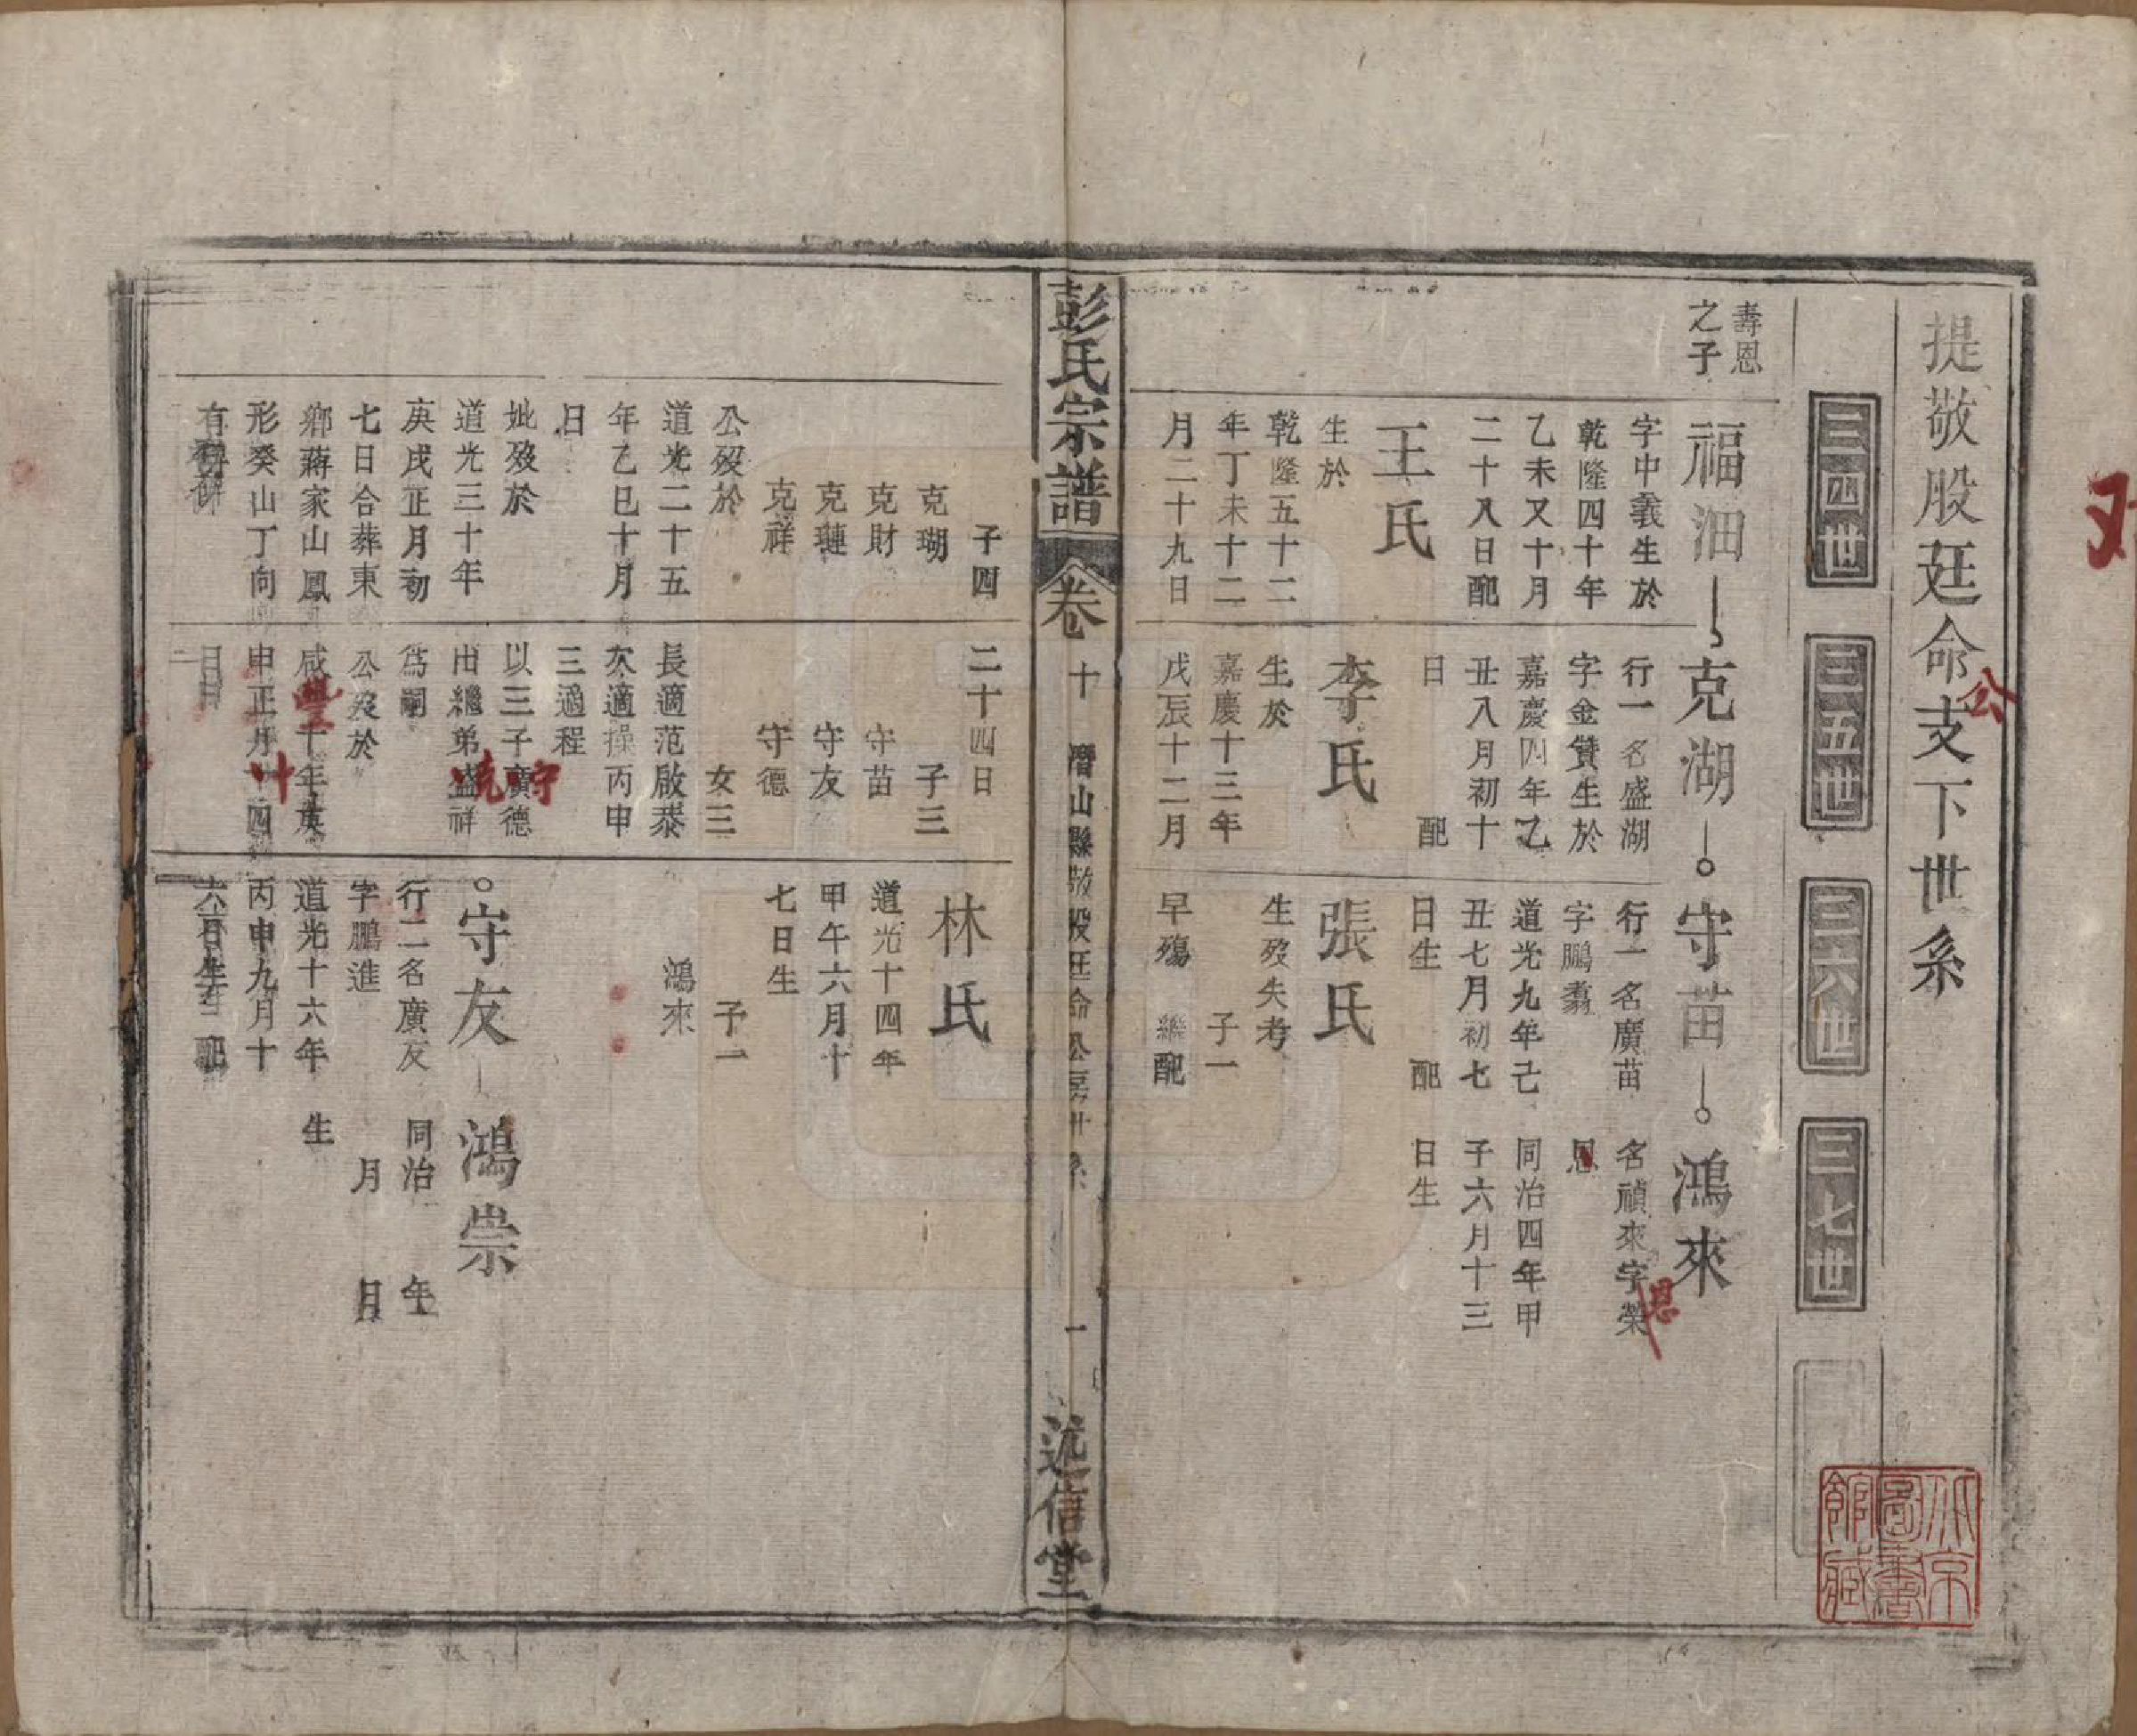 提敬股廷命支下世系
公
三四世
三五世
三六世
三七世
壽恩
之子
福沺
克湖
守苗
鴻來
字中義生於
乾隆四十年
乙未又十月
二十八日配
王氏
生於
乾隆五十二
年丁未十二
月二十九日
行一名盛湖
字金贊生於
嘉慶四年乙
丑八月初十
日 配
李氏
生於
嘉慶十三年
戊辰十二月
行一名廣苗
字鵬翥
道光九年己
丑七月初七
日生 配
張氏
生歿失考
子一
早殤 繼配
名禎來字榮
恩
恩
同治四年甲
子六月十三
日生
彭氏宗譜
卷十
潛山縣敬股廷命公房卅系
一
述信堂
子四
克瑚
克財
克璉
克祥
公歿於
道光二十五
年乙巳十月
日
妣歿於
道光三十年
庚戌正月初
七日合葬東
鄉蔣家山鳳
形癸山丁向
有碑
二十四日
子三
守苗
守友
守德
女三
長適范啟泰
次適操丙申
三適程
以三子廣德
守
出繼弟盛祥
克
為嗣
公歿於
咸豐十年庚
申正月十四
日
林氏
道光十四年
甲午六月十
七日生
子一
鴻來
守友
鴻崇
行二名廣友
字鵬進
道光十六年
丙申九月十
六日生 配
同治 年
月 日
生
北京
圖書
館藏